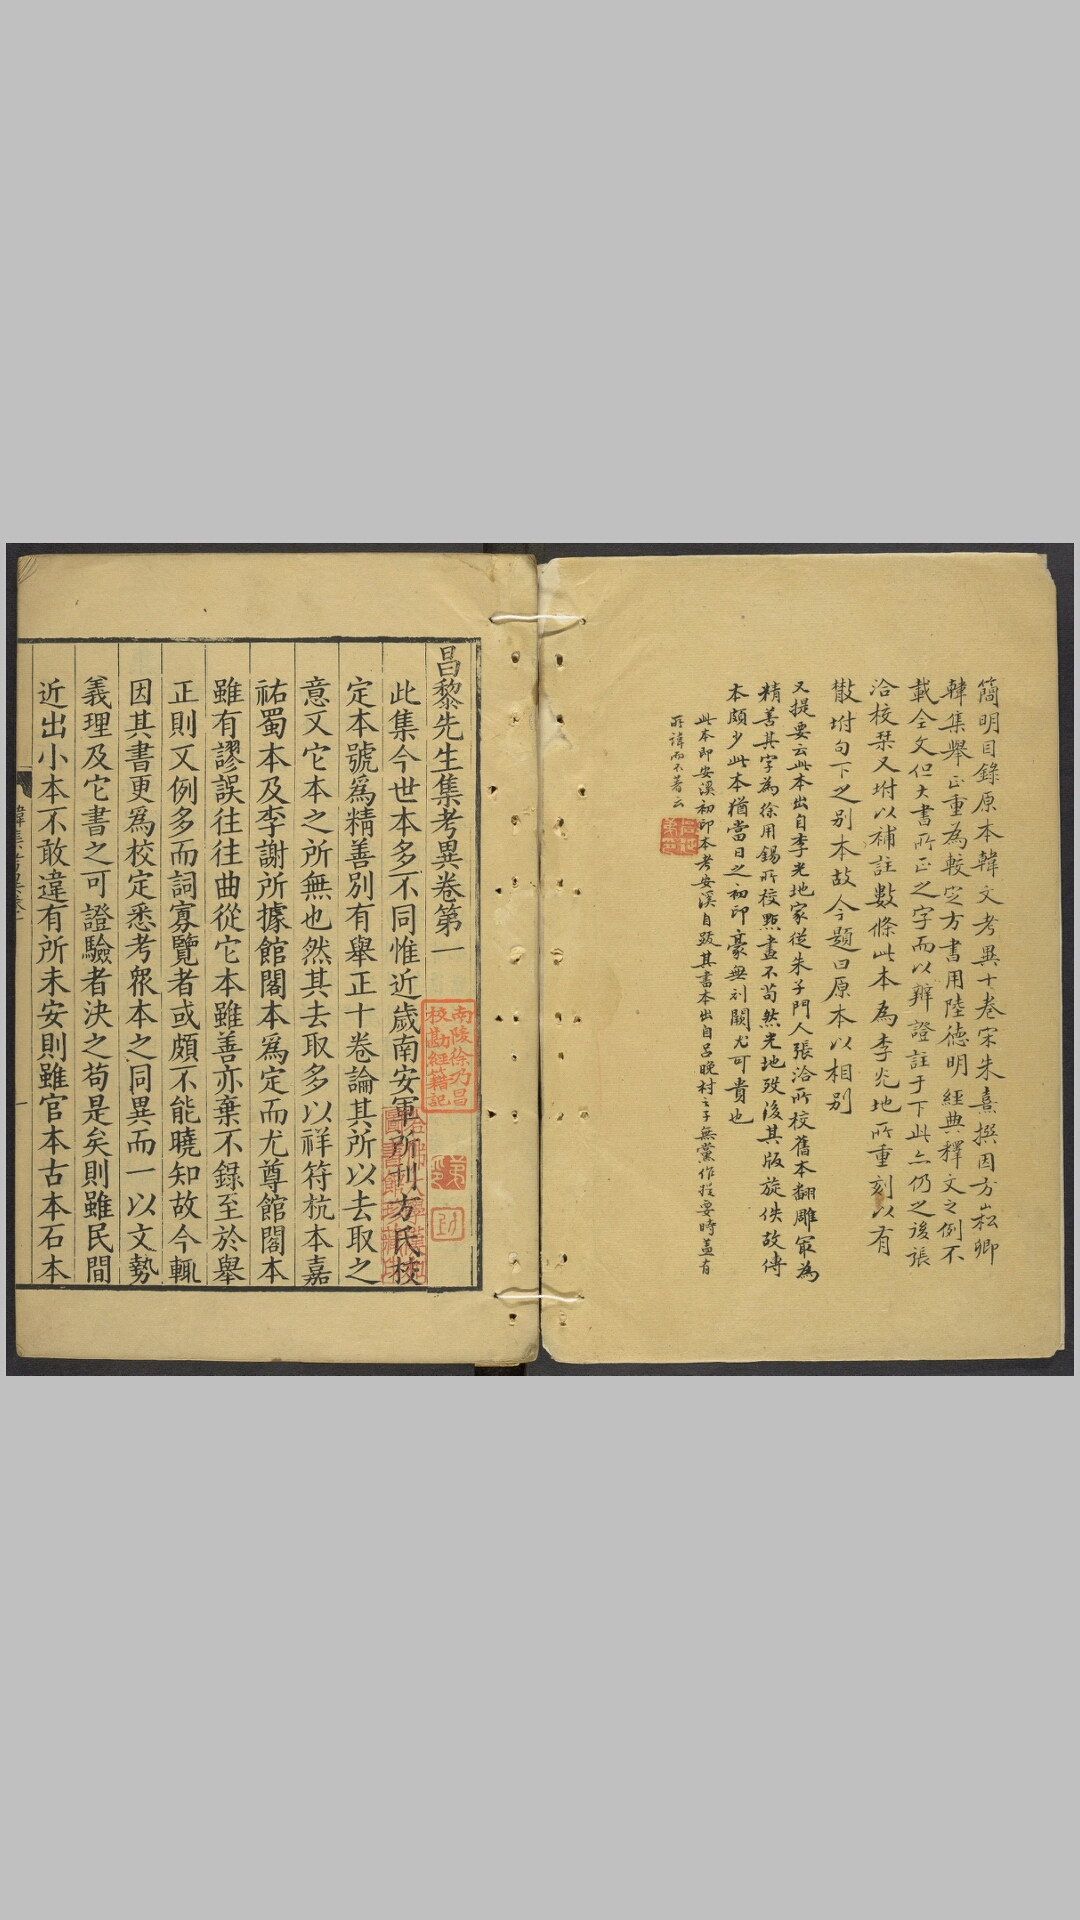 簡明目錄原本韓文考異十卷宋朱熹撰因方崧卿
韓集舉正重為較定方書用陸德明經典釋文之例不
載全文但大書所正之字而以辨證註于下此亦仍之後張
洽校栞又坿以補註數條此本為李光地所重刻以有
散坿句下之别本故今題曰原本以相别
又提要云此本出自李光地家從朱子門人張洽所校舊本翻雕最為
精善其字為徐用錫所校點畫不苟然光地歿後其版旋佚故傳
本頗少此本猶當日之初印豪無刓闕尤可貴也
此本即安溪初印本考安溪自跋其書本出自呂晚村之子無黨作提要時蓋有
所諱而不著云
昌黎先生集考異卷第一
南陵徐乃昌
校勘經籍記
此集今世本多不同惟近歲南安軍所刊方氏校
定本號爲精善别有舉正十卷論其所以去取之
意又它本之所無也然其去取多以祥符杭本嘉
祐蜀本及李謝所據館閣本爲定而尤尊館閣本
雖有謬誤往往曲從它本雖善亦棄不錄至於舉
正則又例多而詞寡覽者或頗不能曉知故今輒
因其書更爲校定悉考衆本之同異而一以文勢
義理及它書之可證驗者決之苟是矣則雖民間
近出小本不敢違有所未安則雖官本古本石本